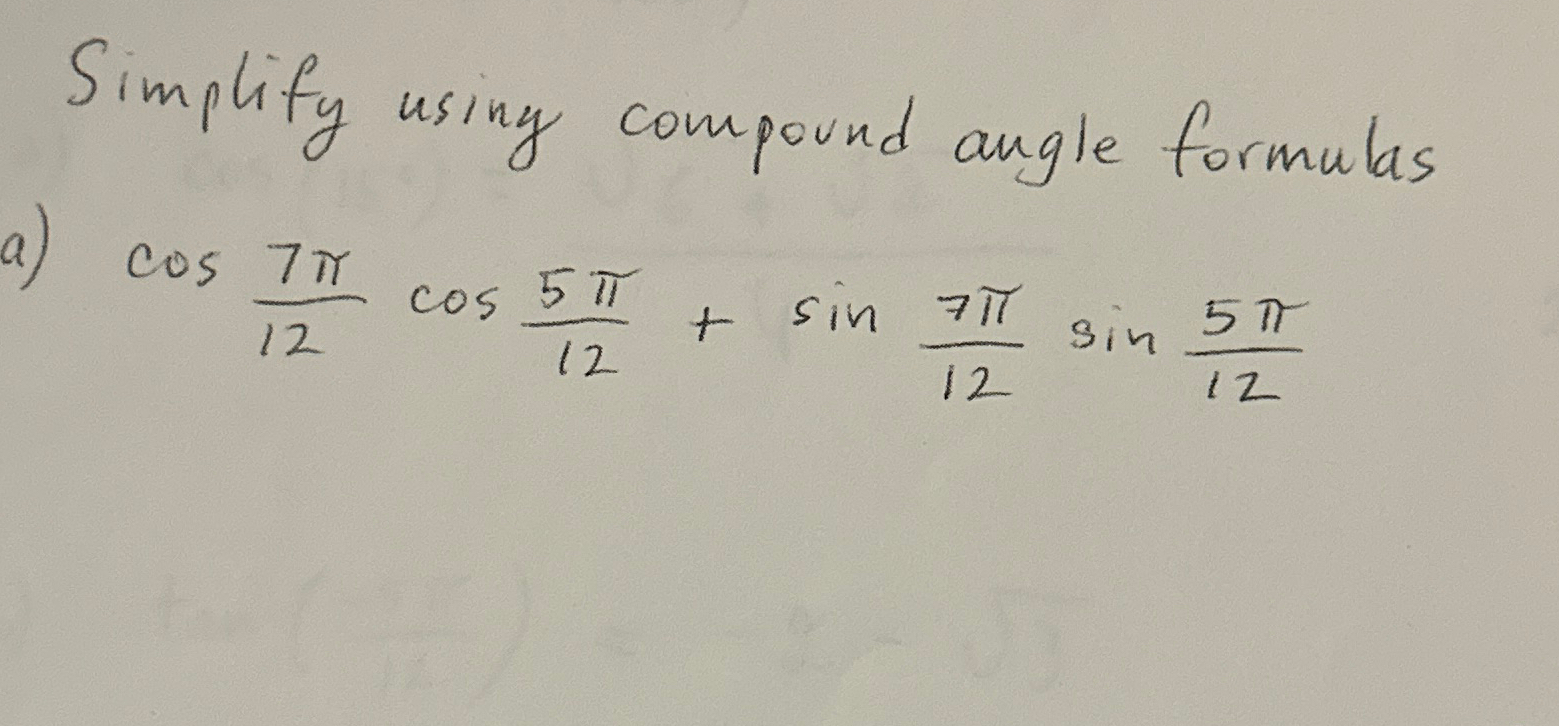 Simplify using compound angle formulas
a) cos 7π/12 cos 5π/12 + sin 7π/12 sin 5π/12